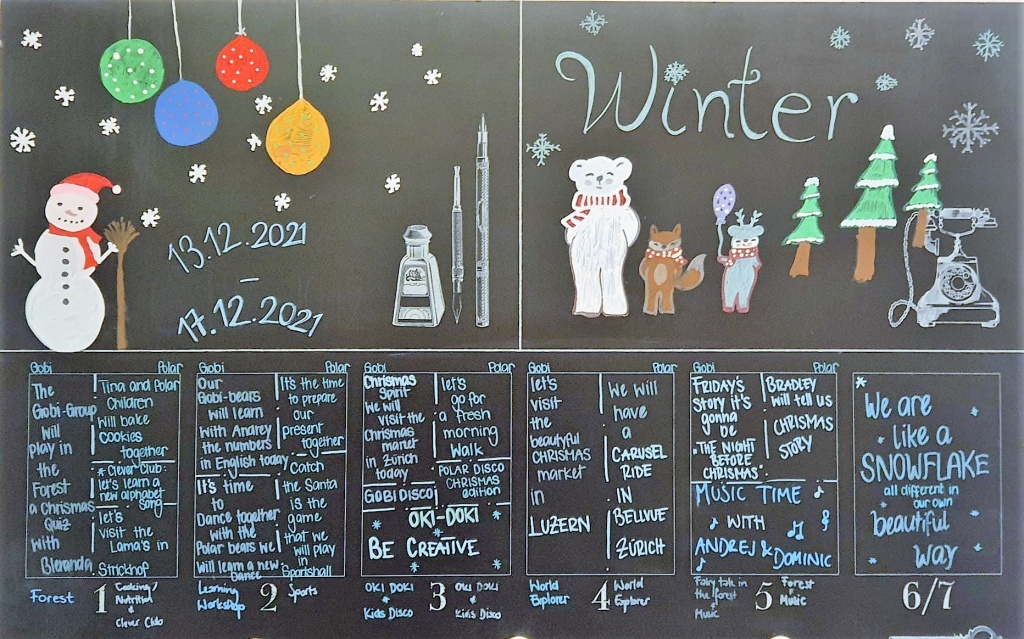 Winter
13.12.2021
–
17.12.2021
Gobi
The
Gobi-Group
will
play in
the
Forest
a Chrismas
Quiz
with
Bleranda
Polar
Tina and Polar
Children
will bake
cookies
together
* Clever Club:
let's learn a
new alphabet
song
let's
visit the
Lama's in
Strickhof
Gobi
Our
Gobi-bears
will learn
with Andrey
the numbers
in English today
It's time
to
Dance together
with the
Polar bears we
will learn a new
Dance
Polar
It's the time
to prepare
our
present
together
Catch
the Santa
is the
game
that we
will play
in
Sportshall
Gobi
Chrismas
Spirit
We will
visit the
Chrismas
market
in Zürich
today
GOBI DISCO
Polar
let's
go for
a fresh
morning
Walk
POLAR DISCO
CHRISMAS
adition
OKI-DOKI
BE CREATIVE
Gobi
let's
visit
the
beautyful
CHRISMAS
market
in
LUZERN
Polar
We will
have
a
CARUSEL
RIDE
IN
BELLVUE
ZÜRICH
Gobi
FRIDAY'S
story it's
gonna
be
"THE NIGHT
BEFORE
CHRISMAS"
Polar
BRADLEY
will tell us
CHRISMAS
STORY
MUSIC TIME
WITH
ANDREJ & DOMINIC
We are
like a
SNOWFLAKE
all different in
our own
beautiful
way
Forest
1
Cooking/
Nutrition
&
Clever Club
Learning
Workshop
2
Sports
OKI DOKI
Kids Disco
3
OKI DOKI
Kids Disco
World
Explorer
4
World
Explorer
Fairy tale in
the forest
Music
5
Forest
Music
6/7